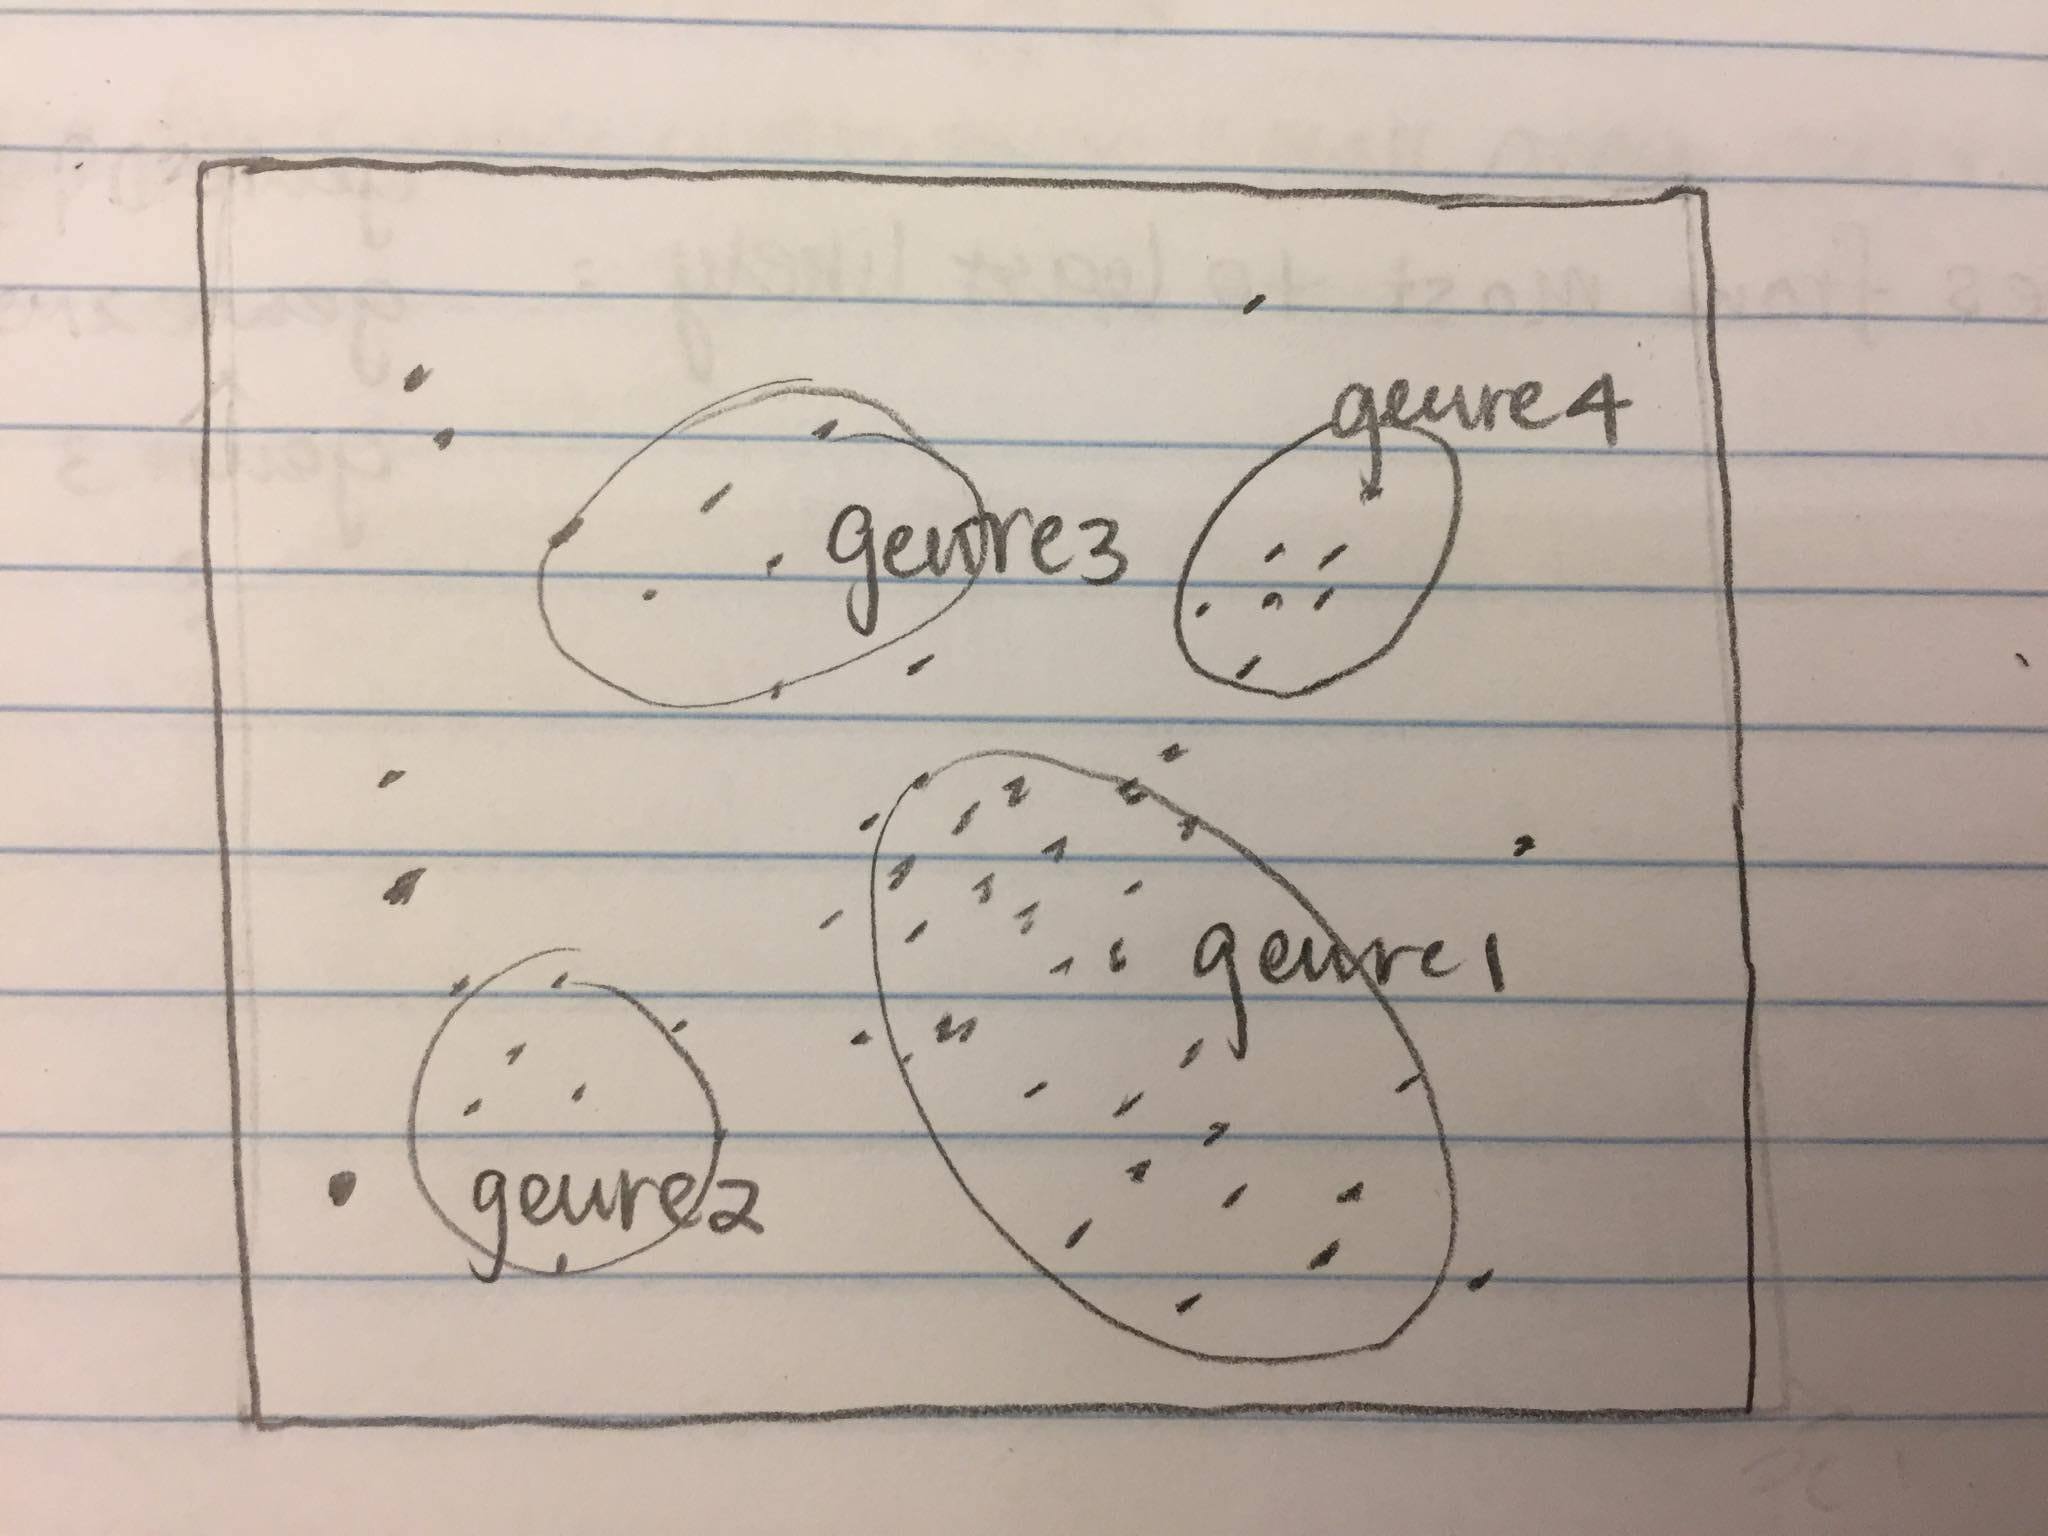 genre4
genre3
genre1
genre2